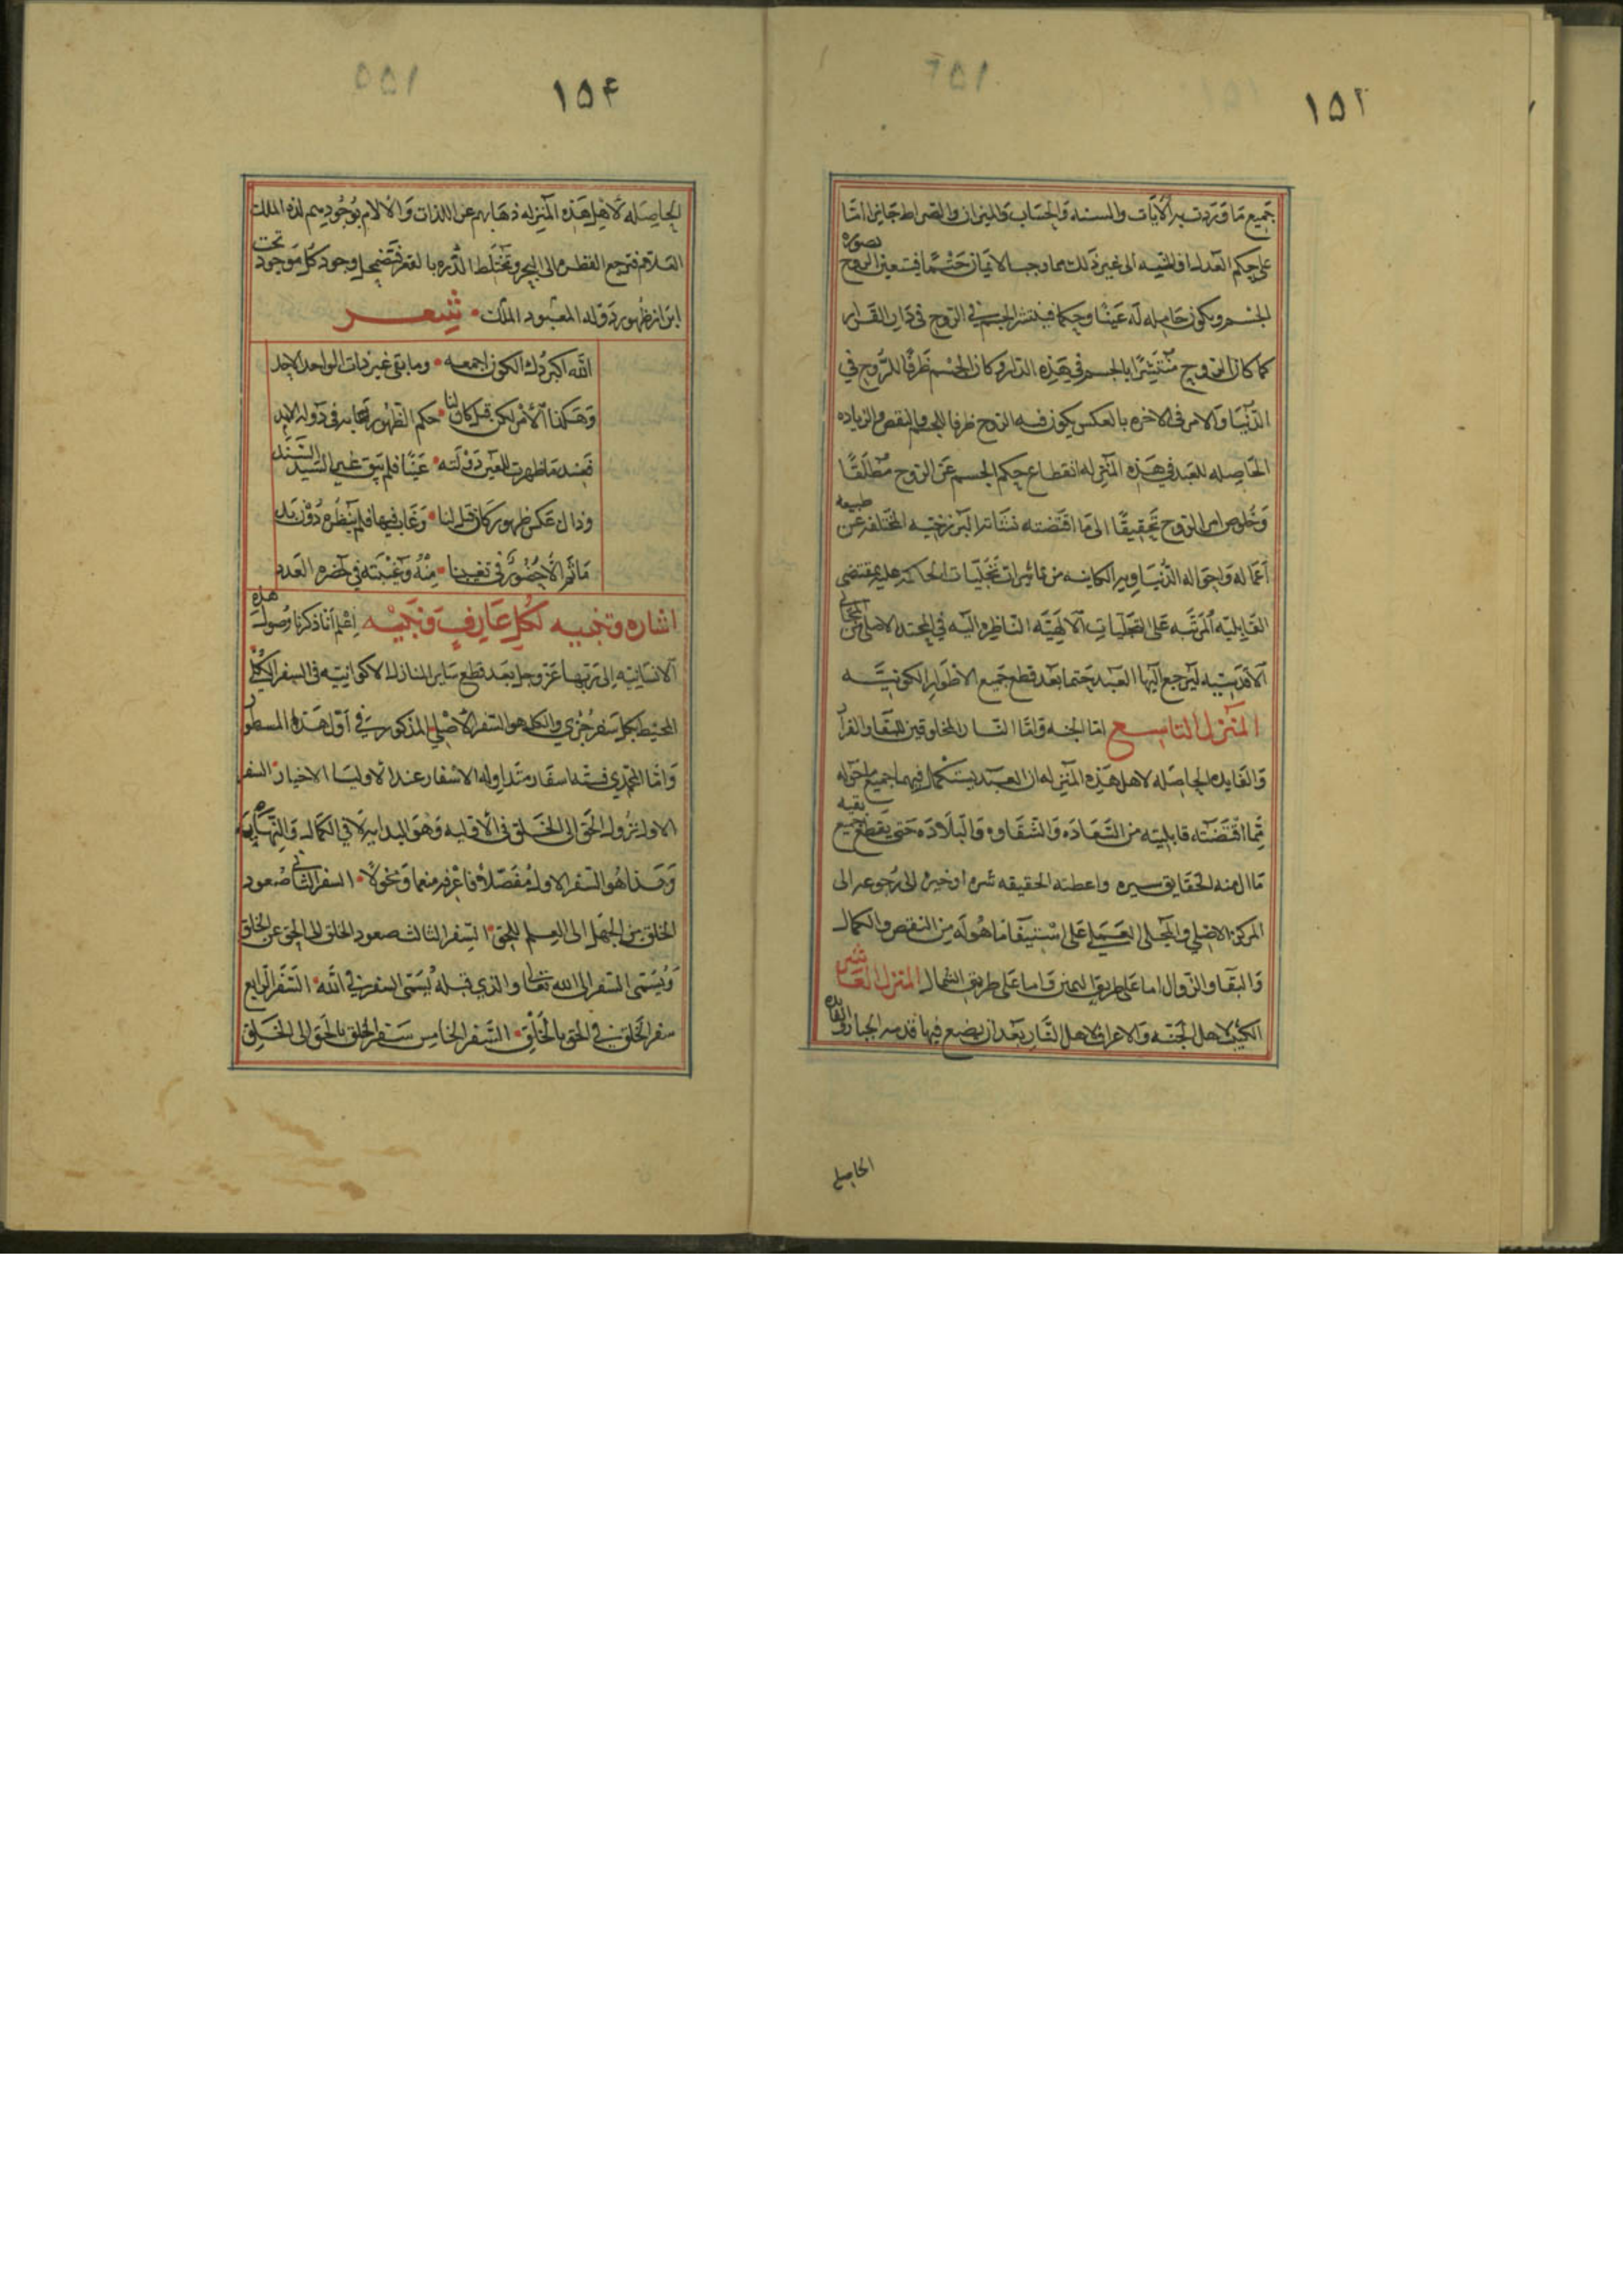 ١٥٢
جميع ما وردت به الآيات والسنه والحساب والميزان والصراط جايزا اما
على حكم العدل او المنيه الى غير ذلك مما وجب الايمان حتما فيتعين الروح بصورة
الجسم ويكون حامله له عينا وحكما فينتشر الجسم في الروح في دار القرار
كما كان الروح منتشرا بالجسم في هذه الدار وكان الجسم ظرفا للروح في
الدنيا والامر في الاخره بالعكس يكون فيه الروح ظرفا للجسم والنقص والزياده
الحاصله للعبد في هذه المنزله انقطاع حكم الجسم عن الروح مطلقا
وخلوص امر الروح تحقيقا الى ما اقتضته نشاته البرزخيه المختلفه عن طبيعه
اعماله واحواله الدنياويه الكاينه من تاثيرات تجليات الحاكمه عليه بمقتضى
القابليه المرتبه على التجليات الالهيه الناظره اليه في المحتد الاصلي من المجالي
الاقدسيه ليرجع اليها العبد حتما بعد قطع جميع الاطوار الكونيه
المنزل التاسع اما الجنه واما النار المخلوقين للبقا والقرار
والفايده الحاصله لاهل هذه المنزله ان العبد يستكمل فيهما جميع ما حواه
مما اقتضته قابليته من السعاده والشقاوه والبلاده حتى يقطع جميع بقيه
ما له منه الحقايق سيره واعطته الحقيقه شره او خيره الى رجوعه الى
المركز الاصلي والمجلى العملي على استيفا ما هو له من النقص والكمال
والبقا والزوال اما على طريق اليمين واما على طريق الشمال المنزل العاشر
الكثيب لاهل الجنه والاعراف لاهل النار بعد ان يضع فيها قدمه الجبار والفايده
الحاصله
١٥٤
الحاصله لاهل هذه المنزله ذهابهم عن اللذات والالام بوجودهم لذه الملك
العلام فترجع القطره الى البحر وتختلط الذره بالقمر فيضمحل وجود كل موجود تحت
ابراز ظهور دوله المعبود الملك شعر
الله اكبر دك الكون اجمعه • وما بقي غير ذات الواحد الاحد
وهكذا الامر لكن قبل كان لنا • حكم الظهور فغابه في دوله الابد
فعند ما ظهرت للعين دولته • عينا فلم يبق غير السيد السند
وذاك عكس ظهور كان قبل لنا • وغاب فيها فلم ينظره ذو رمد
ما ثم الا حضور في تغيبنا • منه وغيبته في حضره العدد
اشاره وتنبيه لكل عارف ونبيه اعلم انا ذكرنا وصول هذه
الانسانيه الى ربها عز وجل بعد قطع ساير المنازل الاكوانيه في السفر الكلي
المحيط بكل سفر جزي والكل هو السفر الاصلي المذكور في اول هذه المسطور
واما المحمدي فسته اسفار متداوله الاسفار عند الاوليا الاخيار • السفر
الاول نزول الحق الى الخلق في الاوليه وهو البدايه لا في الكمال والنهايه
وهذا هو السفر الاول مفصلا فاعرفه منعما ومخولا • السفر الثاني صعود
الخلق من الجهل الى العلم بالحق • السفر الثالث صعود الخلق الى الحق عن الخلق
ويسمى السفر الى الله تعالى والذي قبله يسمى السفر في الله • السفر الرابع
سفر الخلق في الحق بالخلق • السفر الخامس سفر الخلق بالحق الى الخلق